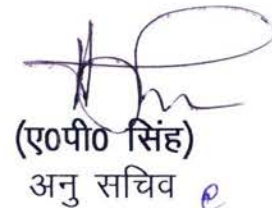 (ए०पी० सिंह)
अनु सचिव